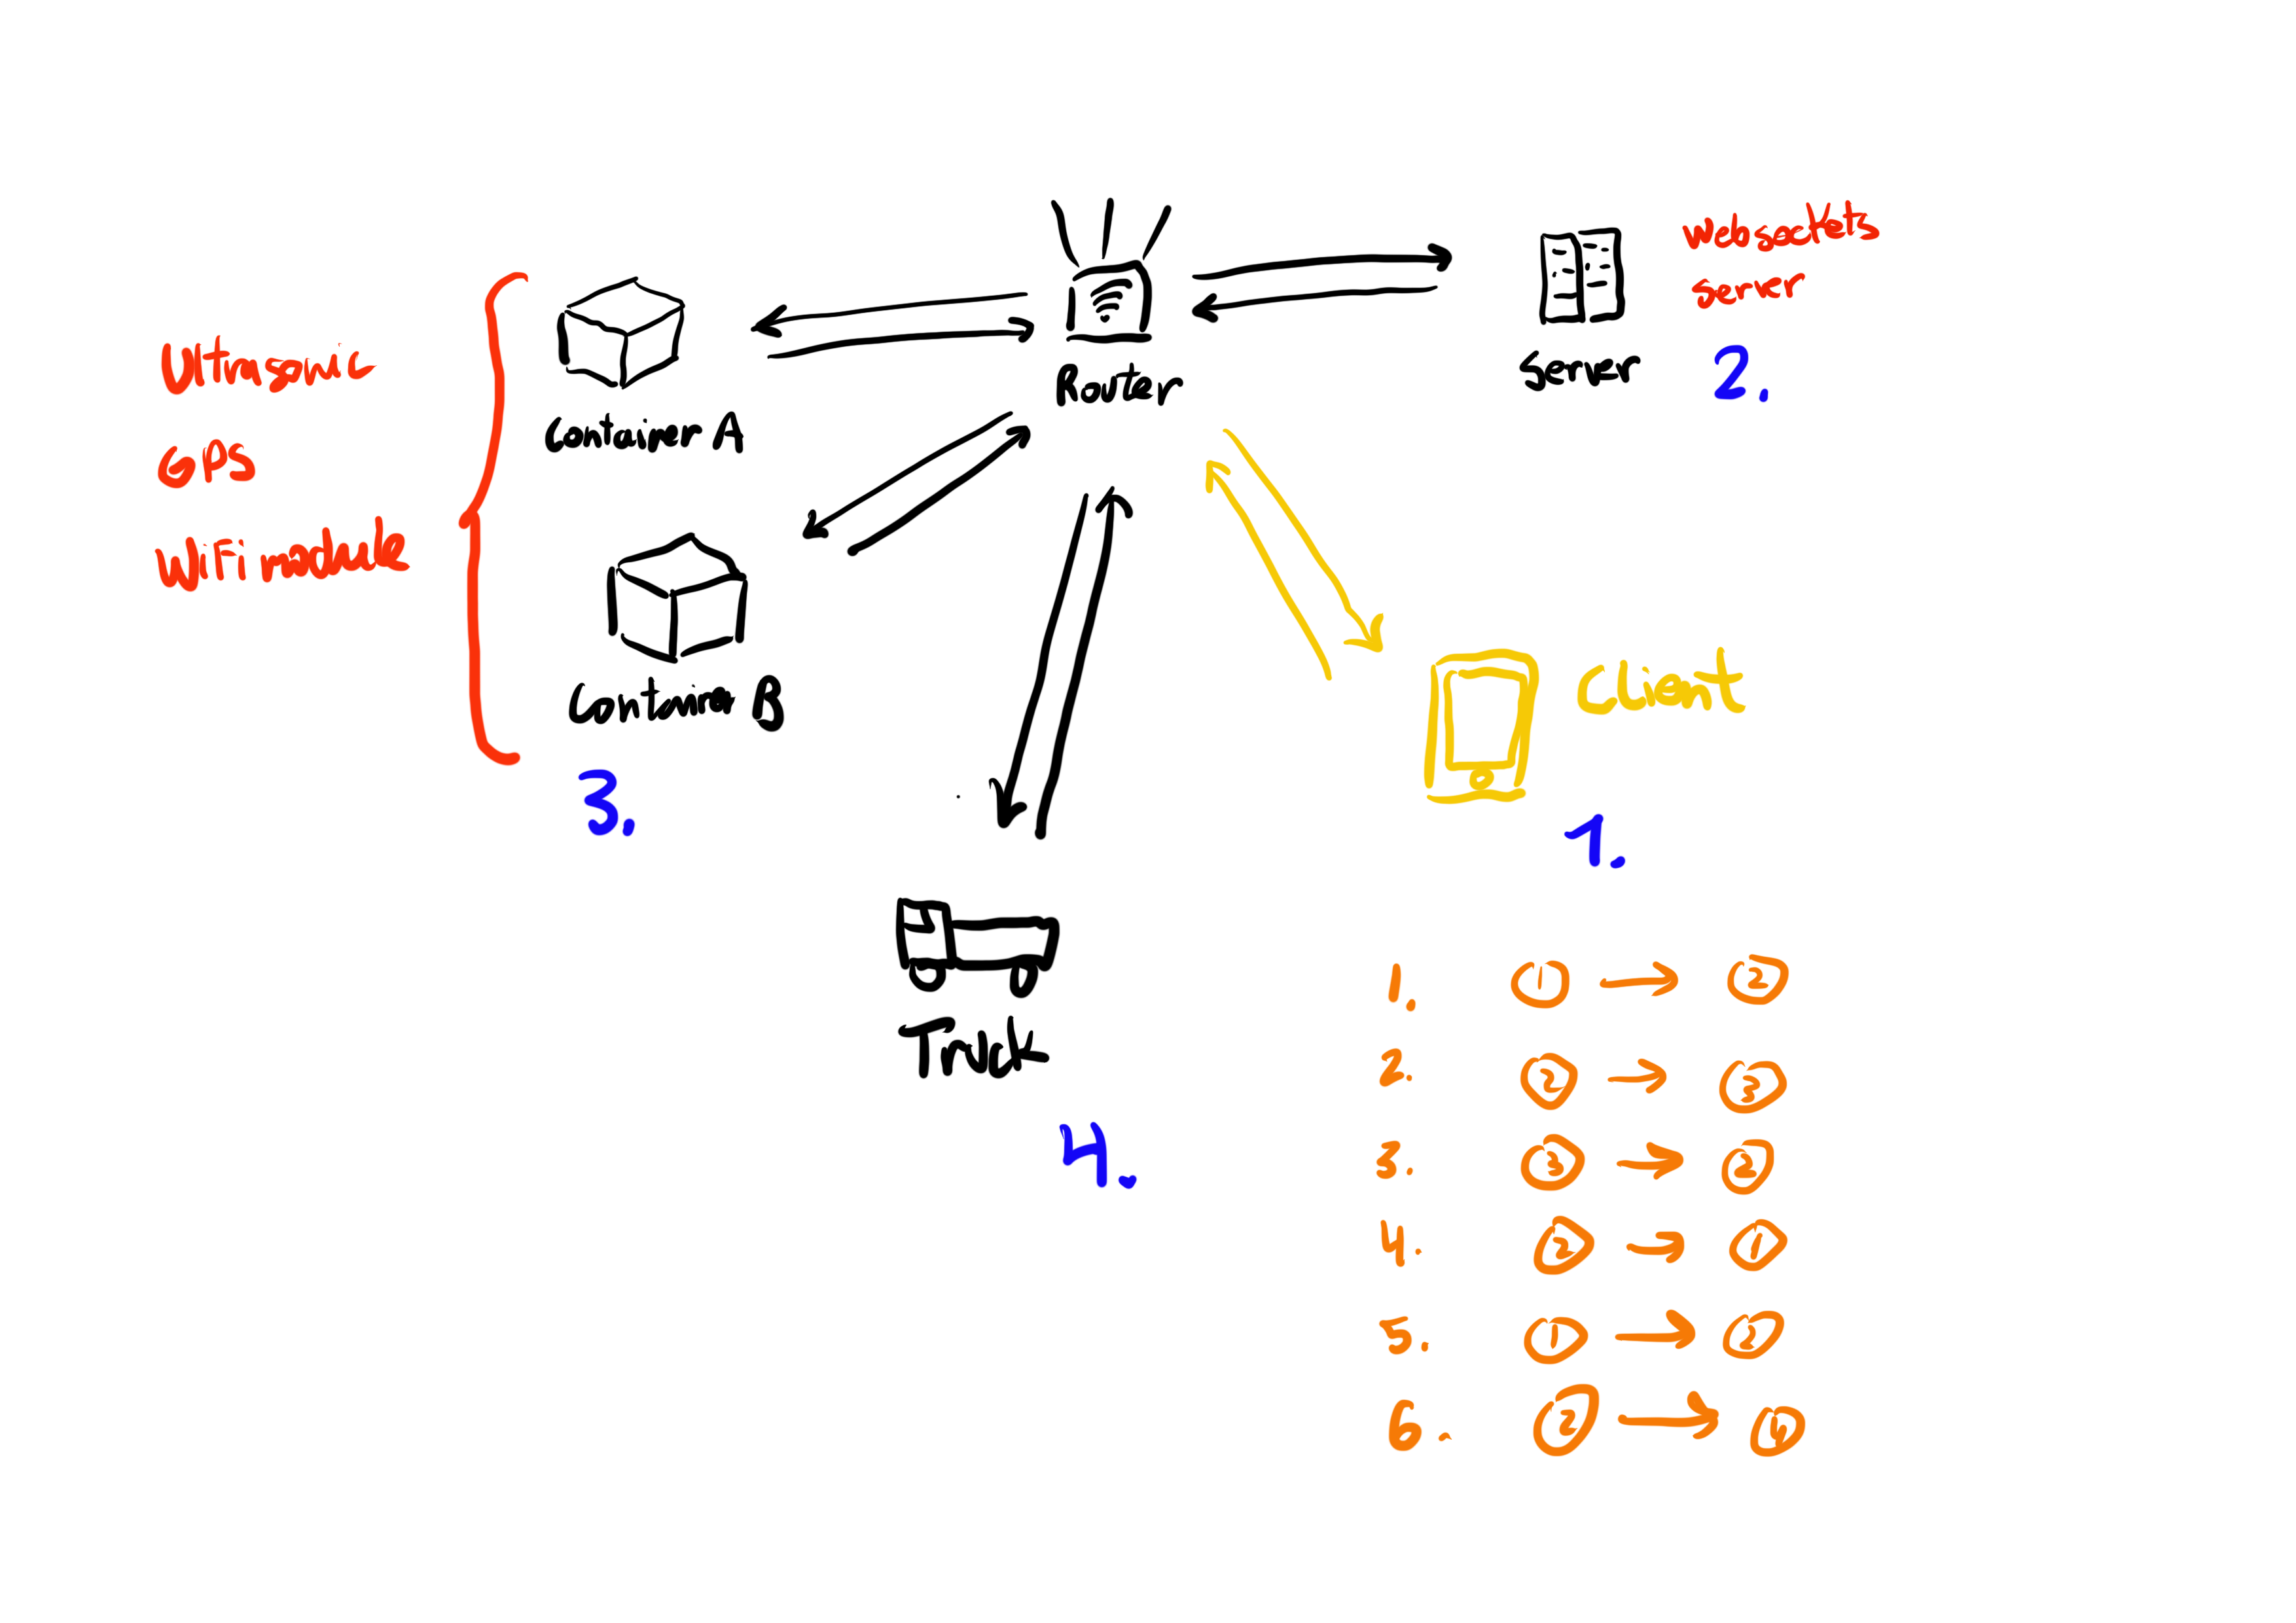 Ultrasonic
GPS
WiFi module
Container A
Container B
3.
Router
Server
Websockets
server
2.
Client
1.
Truck
4.
1. 1 → 2
2. 2 → 3
3. 3 → 2
4. 2 → 1
5. 1 → 2
6. 2 → 4